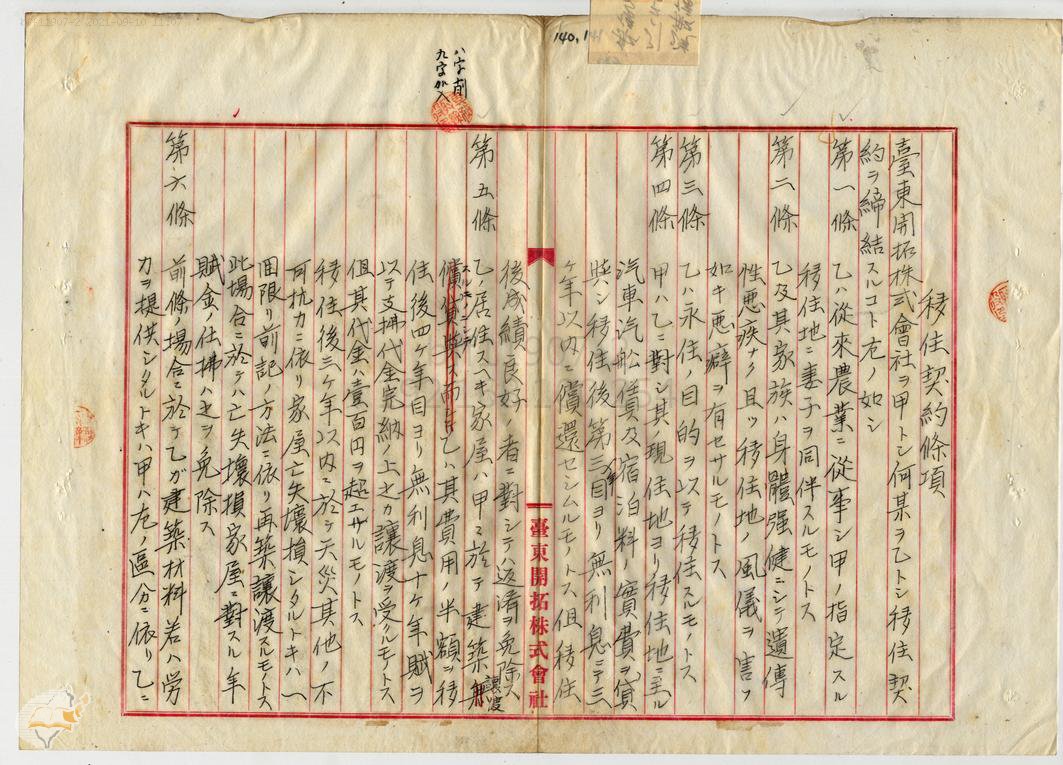 移住契約條項
臺東開拓株式會社ヲ甲トシ何某ヲ乙トシ移住契
約ヲ締結スルコト左ノ如シ
第一條 乙ハ從來農業ニ從事シ甲ノ指定スル
移住地ニ妻子ヲ同伴スルモノトス
第二條 乙及其家族ハ身體强健ニシテ遺傳
性惡疾ナク且ツ移住地ノ風儀ヲ害スル
如キ惡癖ヲ有セサルモノトス
第三條 乙ハ永住ノ目的ヲ以テ移住スルモノトス
第四條 甲ハ乙ニ對シ其現住地ヨリ移住地ニ至ル
汽車汽舩賃及宿泊料ノ實費ヲ貸
與シ移住後第三年目ヨリ無利息ニテ三
ケ年以內ニ償還セシムルモノトス但移住
後成績良好ノ者ニ對シテハ返濟ヲ免除ス
第五條 乙ノ居住スヘキ家屋ハ甲ニ於テ建築讓渡
スルモノトシ乙ハ其費用ノ半額ヲ移
住後四ケ年目ヨリ無利息十ケ年賦ヲ
以テ支拂代金完納ノ上之カ讓渡ヲ受クルモノトス
但其代金ハ壹百円ヲ超エサルモノトス
移住後三ケ年以內ニ於テ天災其他ノ不
可抗力ニ依リ家屋亡失壞損シタルトキハ一
回限リ前記ノ方法ニ依リ再築讓渡スルモノトス
此場合ニ於テハ亡失壞損家屋ニ對スル年
賦金ノ仕拂ハ之ヲ免除ス
第六條 前條ノ場合ニ於テ乙ガ建築材料若ハ労
力ヲ提供シタルトキハ甲ハ左ノ區分ニ依リ乙ニ
八字削
九字加入
臺東開拓株式會社
140,1
2021-09-10 11:07